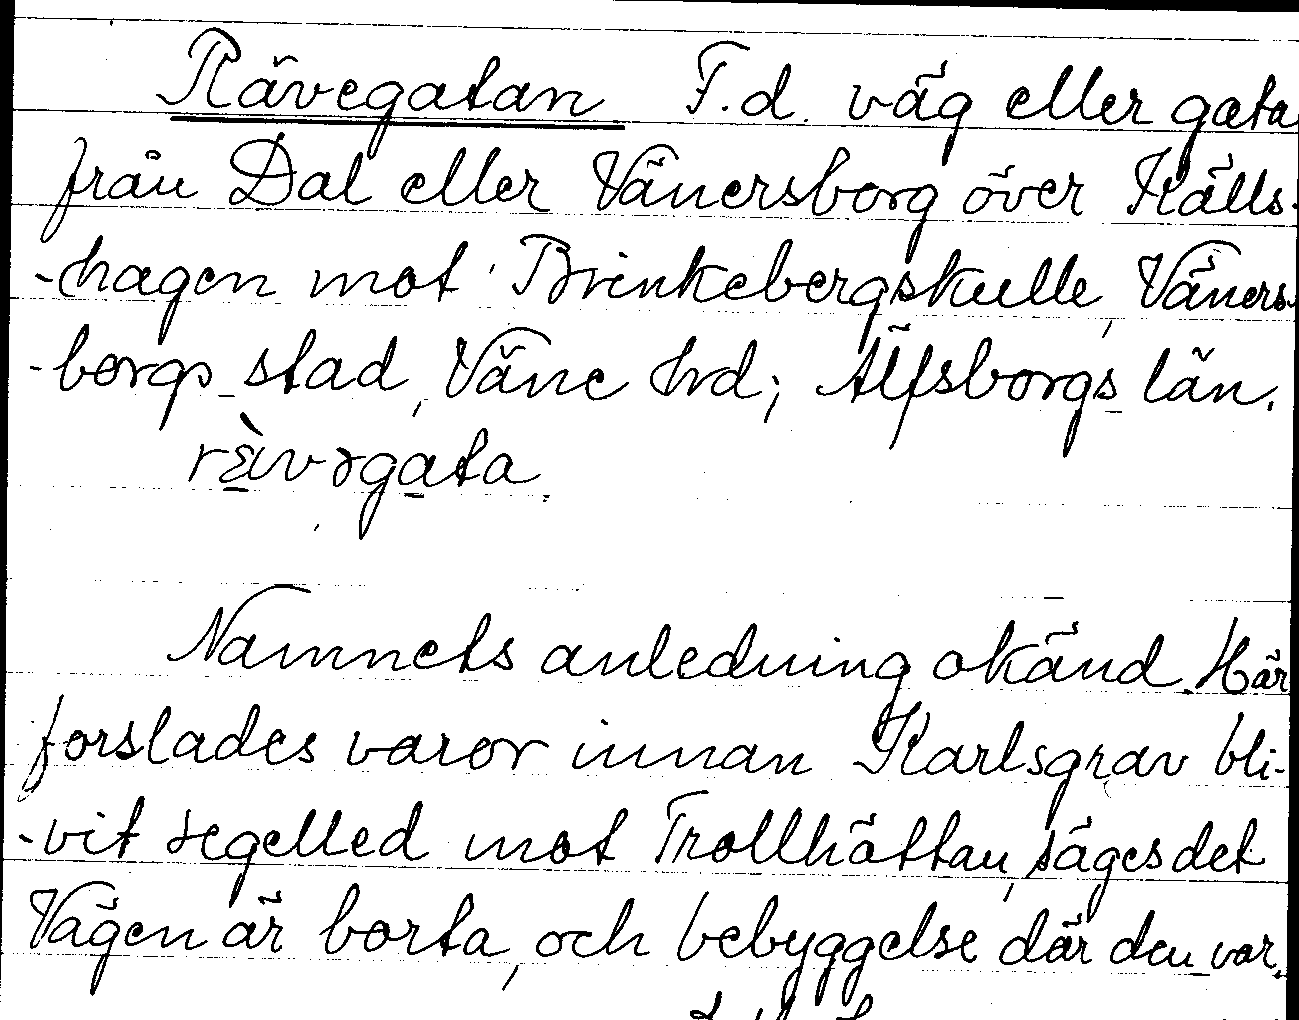 Rävegatan F.d. väg eller gata
från Dal eller Vänersborg över Källs-
-hagen mot Brinkebergskulle, Väners-
-borgs stad, Väne hrd; Älfsborgs län.
rɛ̀vəgata.
Namnets anledning okänd. Här
forslades varor innan Karlsgrav bli-
-vit segelled mot Trollhättan, säges det
Vägen är borta, och bebyggelse där den var.